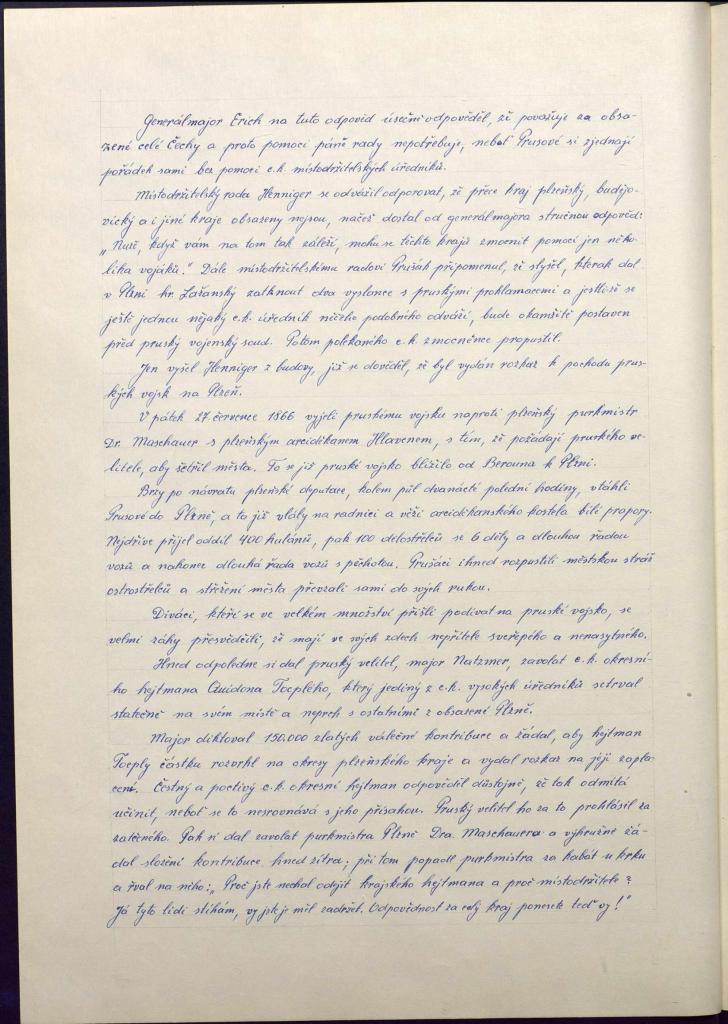 Generálmajor Erich na tuto odpověď úsečně odpověděl, že považuje za obsa-
zené celé Čechy a proto pomoci páně rady nepotřebuje, neboť Prusové si zjednají
pořádek sami bez pomoci c.k. místodržitelských úředníků.
Místodržitelský rada Henniger se odvážil odporovat, že přece kraj plzeňský, budějo-
vický a i jiné kraje obsazeny nejsou, načež dostal od generálmajora stručnou odpověď:
„Nuže, když vám na tom tak záleží, mohu se těchto krajů zmocnit pomocí jen něko-
lika vojáků." Dále místodržitelskému radovi Prušák připomenul, že slyšel, kterak dal
v Plzni hr. Lažanský zatknout dva vyslance s pruskými proklamacemi a jestli-že se
ještě jednou nějaký c.k. úředník něčeho podobného odváží, bude okamžitě postaven
před pruský vojenský soud. Potom polekaného c.k. zmocněnce propustil.
Jen vyšel Henniger z budovy, již se dověděl, že byl vydán rozkaz k pochodu prus-
kých vojsk na Plzeň.
V pátek 27 července 1866 vyjeli pruskému vojsku naproti plzeňský purkmistr
Dr. Maschauer s plzeňským arciděkanem Hlavanem, s tím, že požádají pruského ve-
litele, aby šetřil města. To se již pruské vojsko blížilo od Berouna k Plzni.
Brzy po návratu plzeňské deputace, kolem půl dvanácté polední hodiny, vtáhli
Prusové do Plzně, a to již vlály na radnici a věži arciděkanského kostela bílé prapory.
Nejdříve přijel oddíl 400 hulánů, pak 100 dělostřelců se 6 děly a dlouhou řadou
vozů a nakonec dlouhá řada vozů s pěchotou. Prušáci ihned rozpustili městskou stráž
ostrostřelců a střežení města převzali sami do svých rukou.
Diváci, kteří se ve velkém množství přišli podívat na pruské vojsko, se
velmi záhy přesvědčili, že mají ve svých zdech nepřítele sveřepého a nenasytného.
Hned odpoledne si dal pruský velitel, major Natzmer, zavolat c.k. okresní-
ho hejtmana Quidona Toeplého, který jediný z c.k. vysokých úředníků setrval
statečně na svém místě a neprch s ostatními z obsazené Plzně.
Major diktoval 150.000 zlatých válečné kontribuce a žádal, aby hejtman
Toeply částku rozvrhl na okresy plzeňského kraje a vydal rozkaz na její zapla-
cení. Čestný a poctivý c.k. okresní hejtman odpověděl důstojně, že tak odmítá
učinit, neboť se to nesrovnává s jeho přísahou. Pruský velitel ho za to prohlásil za
zatčeného. Pak si dal zavolat purkmistra Plzně Dra. Maschauera a výhružně žá-
dal složení kontribuce hned zítra; při tom popadl purkmistra za kabát u krku
a řval na něho: „Proč jste nechal odejít krajského hejtmana a proč místodržitele?
Já tyto lidi stíhám, vy jste je měl zadržet. Odpovědnost za celý kraj ponesete teď vy!"